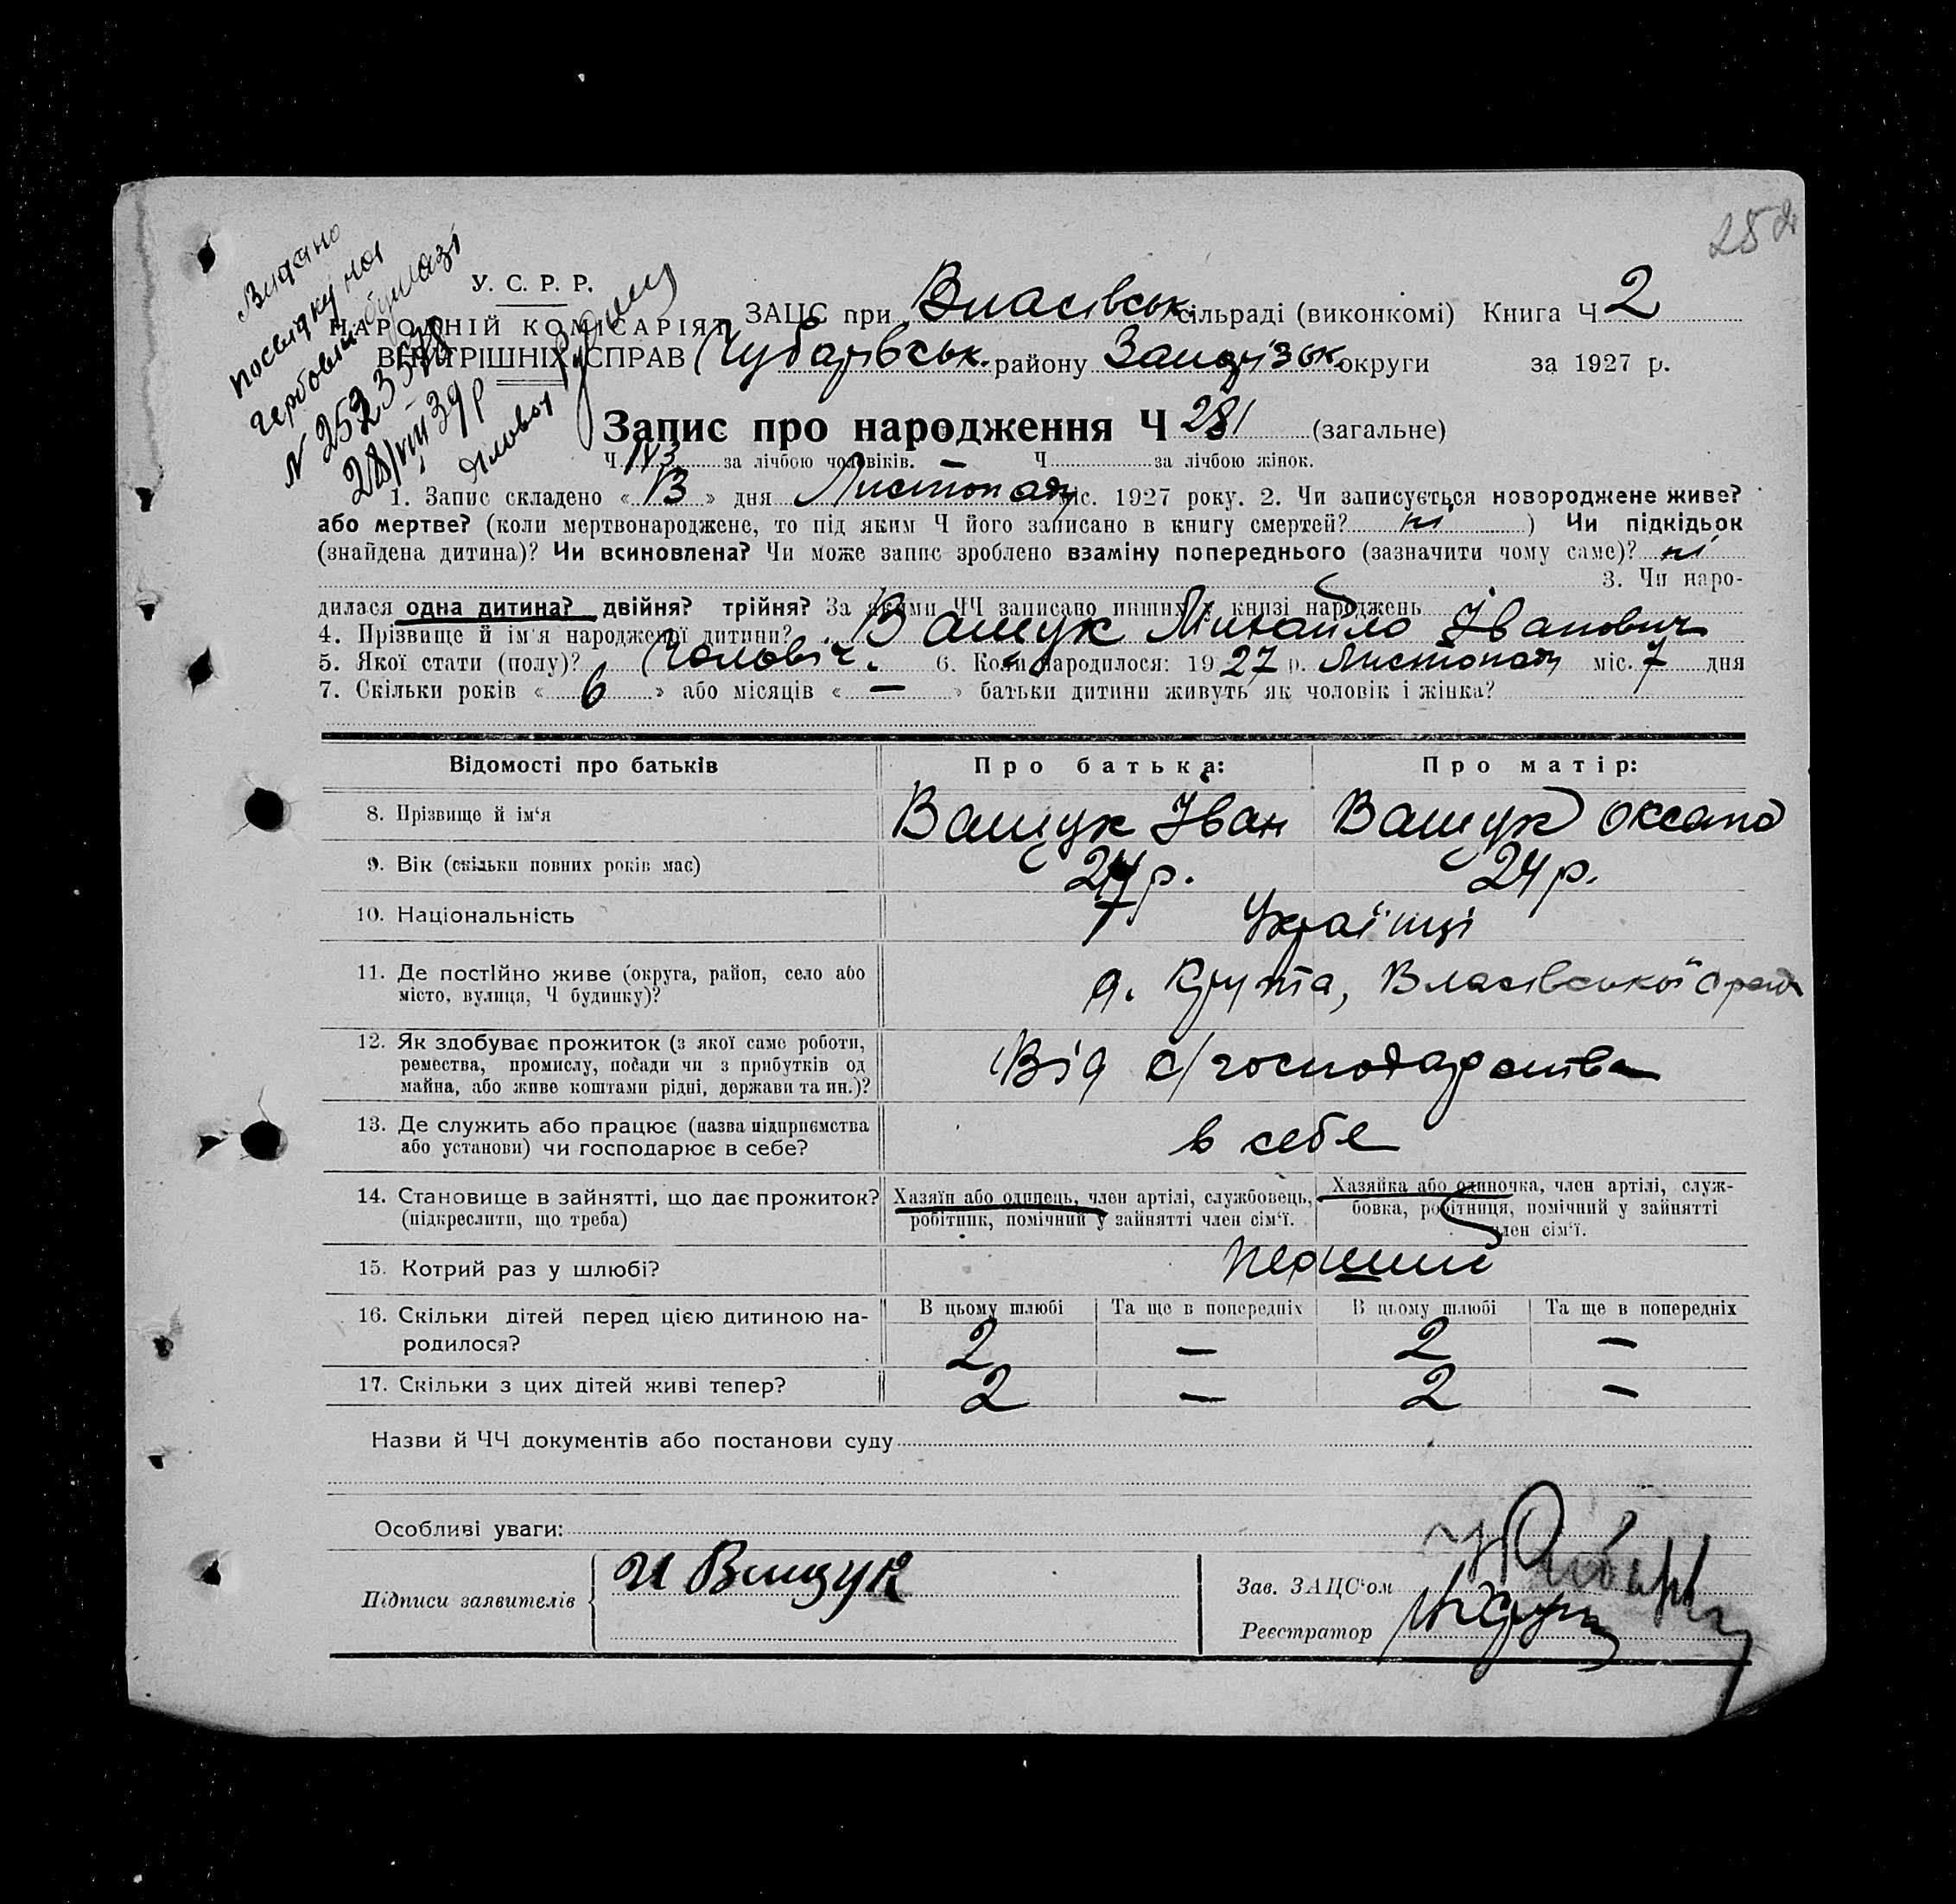 252
Видано
посвідку на
гербовім бумазі
N 252357
28/VIII 39 р
У. С. Р. Р.
НАРОДНІЙ КОМІСАРІЯТ
ВНУТРІШНІХ СПРАВ
ЗАЦС при Власівськ. сільраді (виконкомі) Книга Ч 2
Чубарівськ. району Запорізьк. округи за 1927 р.
Запис про народження Ч 281 (загальне)
Ч за лічбою чоловіків. — Ч за лічбою жінок.
1. Запис складено « 13 » дня Листопаду міс. 1927 року. 2. Чи записується новороджене живе?
або мертве? (коли мертвонароджене, то під яким Ч його записано в книгу смертей? ні ) Чи підкідьок
(знайдена дитина)? Чи всиновлена? Чи може запис зроблено взаміну попереднього (зазначити чому саме)? ні
3. Чи наро-
дилася одна дитина? двійня? трійня? За якими ЧЧ записано инших у книзі народжень
4. Прізвище й ім'я народженої дитини? Ващук Михайло Іванович
5. Якої стати (полу)? Чоловіч. 6. Коли народилося: 1927 р. Листопаду міс. 7 дня
7. Скільки років « 6 » або місяців « — » батьки дитини живуть як чоловік і жінка?
Відомості про батьків Про батька: Про матір:
8. Прізвище й ім'я Ващук Іван Ващук Оксана
9. Вік (скільки повних років має) 27 р. 24 р.
10. Національність Українці
11. Де постійно живе (округа, район, село або
місто, вулиця, Ч будинку)?
д. Крута, Власівської с ради
12. Як здобуває прожиток (з якої саме роботи,
ремества, промислу, посади чи з прибутків од
майна, або живе коштами рідні, держави та ин.)?
Від с/господарства
13. Де служить або працює (назва підприємства
або установи) чи господарює в себе?
в себе
14. Становище в зайнятті, що дає прожиток?
(підкреслити, що треба)
Хазяїн або одинець, член артілі, службовець,
робітник, помічний у зайнятті член сім'ї.
Хазяйка або одиночка, член артілі, служ-
бовка, робітниця, помічний у зайнятті
член сім'ї.
15. Котрий раз у шлюбі? перший
16. Скільки дітей перед цією дитиною на-
родилося?
В цьому шлюбі Та ще в попередніх В цьому шлюбі Та ще в попередніх
2 — 2 —
17. Скільки з цих дітей живі тепер? 2 — 2 —
Назви й ЧЧ документів або постанови суду
Особливі уваги:
Підписи заявителів И Ващук
Зав. ЗАЦС'ом
Реєстратор